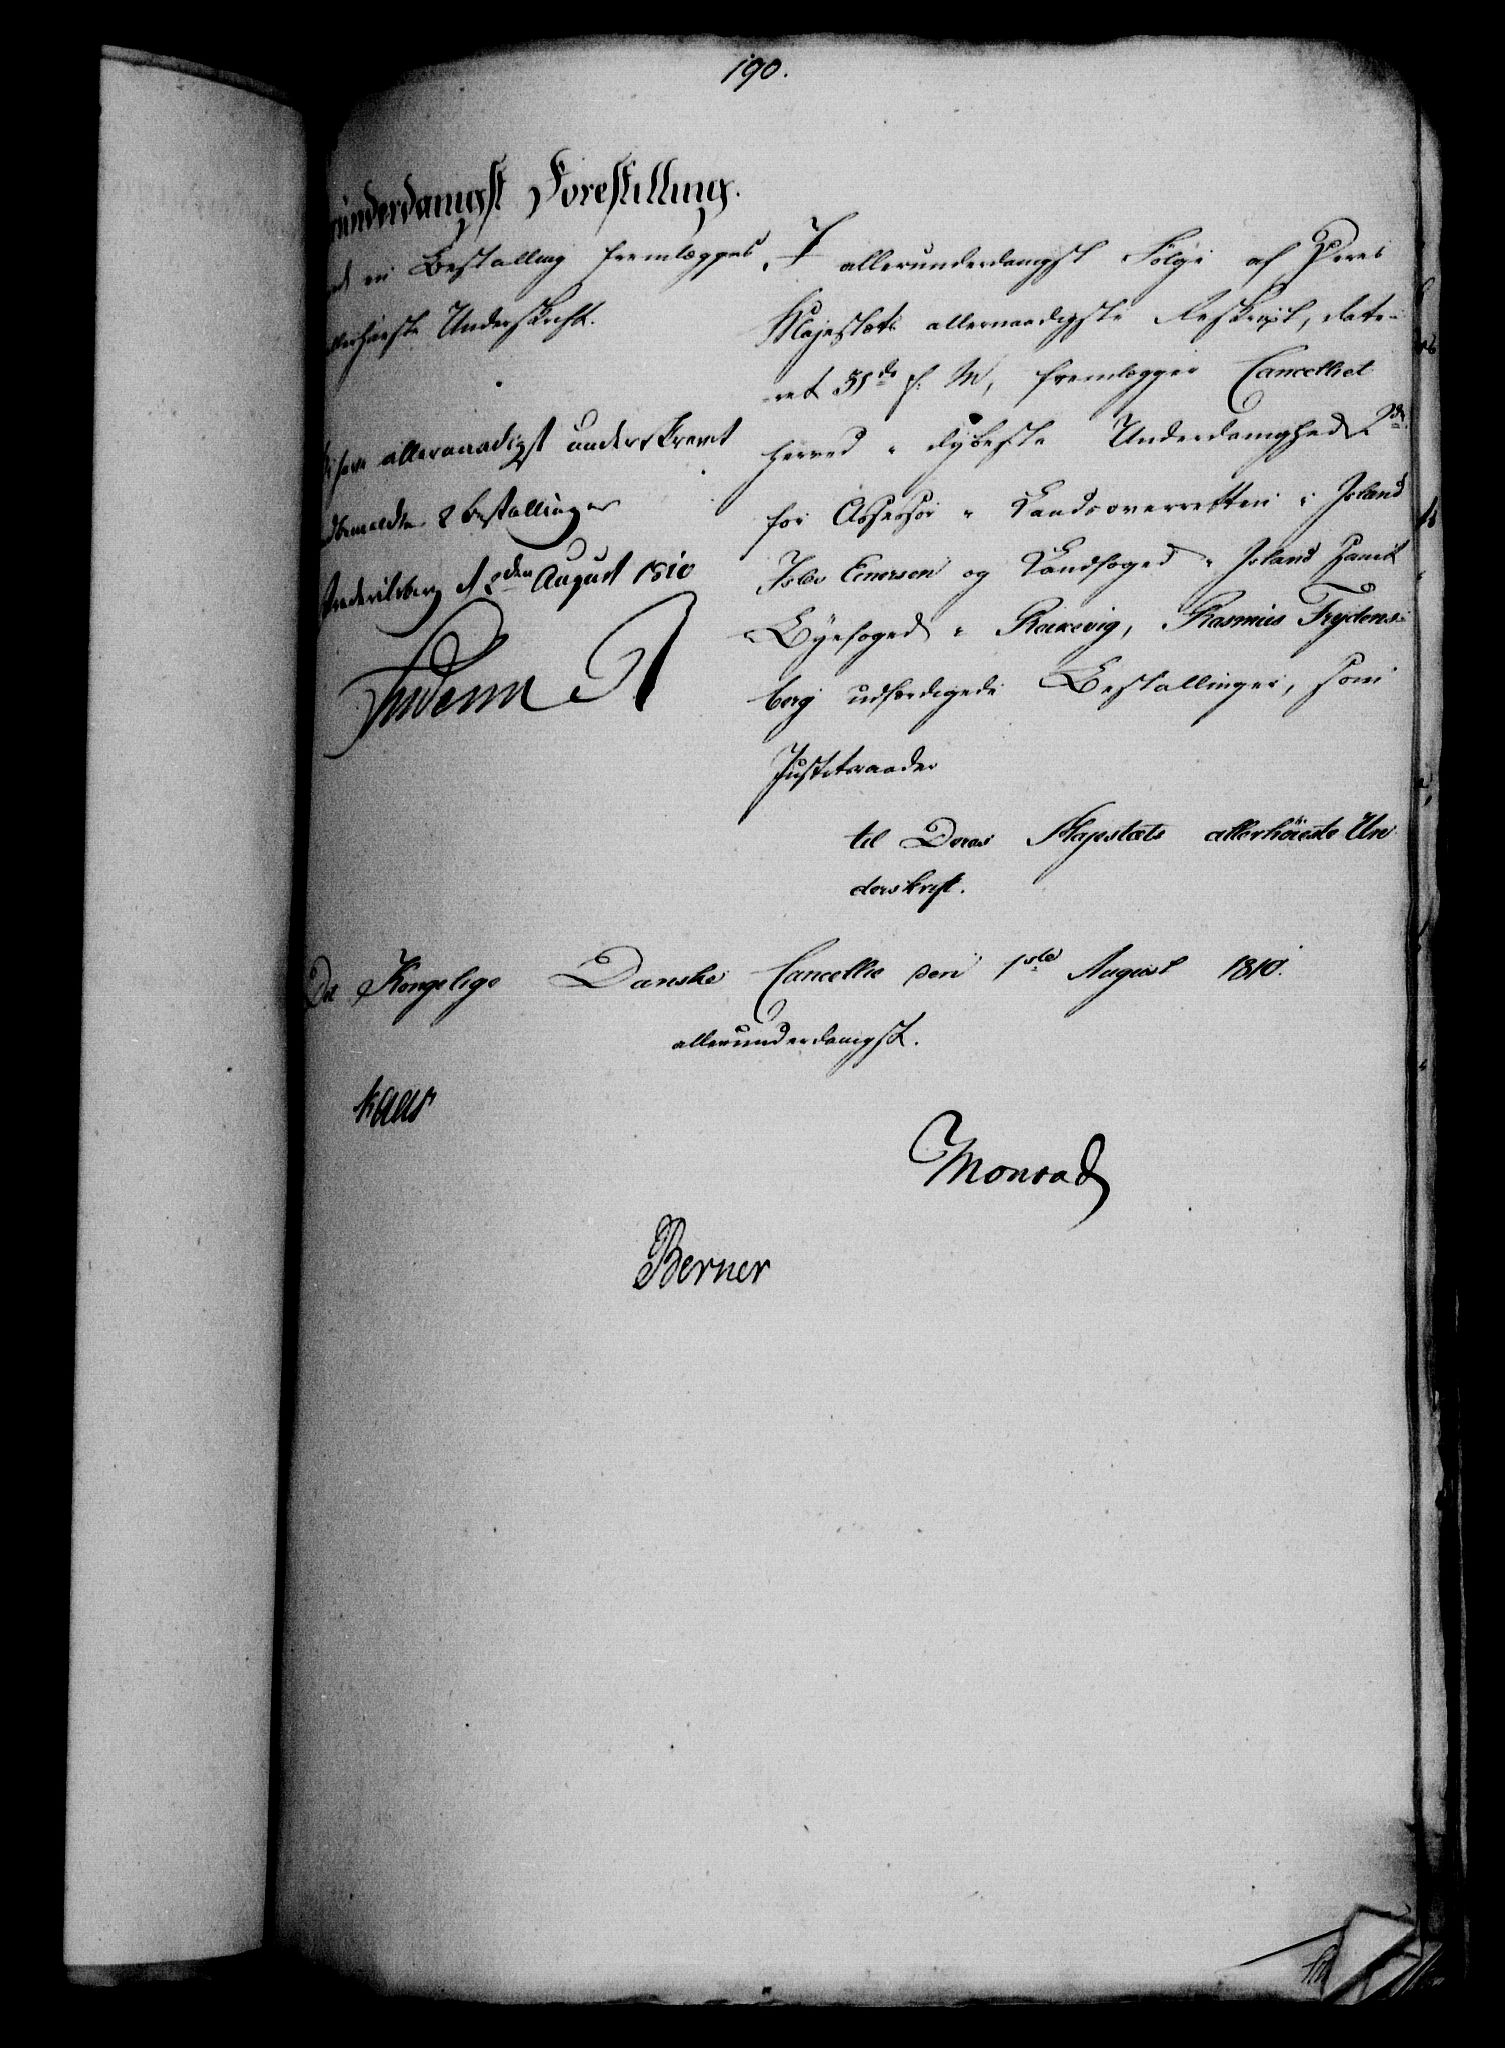 190.
underdanigst Forestilling.
en Bestalling fremlægges
allerhøieste Underskrift.
Vi have allernaadigst underskrevet
2 Bestallinger
Frederiksberg d 2den August 1810
Frederik R
I allerunderdanigst Følge af Deres
Majestæts allernaadigste Reskript, date-
ret 31de f. M, fremlægger Cancelliet
herved i dybeste Underdanighed 2de
for Assessor i Landsoverretten i Island
Islev Einersen og Landfoged i Island samt
Byefoged i Reikevig, Rasmus Frydens-
berg udfærdigede Bestallinger, som
Justitsraader
til Deres Majestæts allerhöieste Un
derskrift.
Det Kongelige Danske Cancellie den 1ste August 1810.
allerunderdanigst.
Kaas
Monrad
Berner